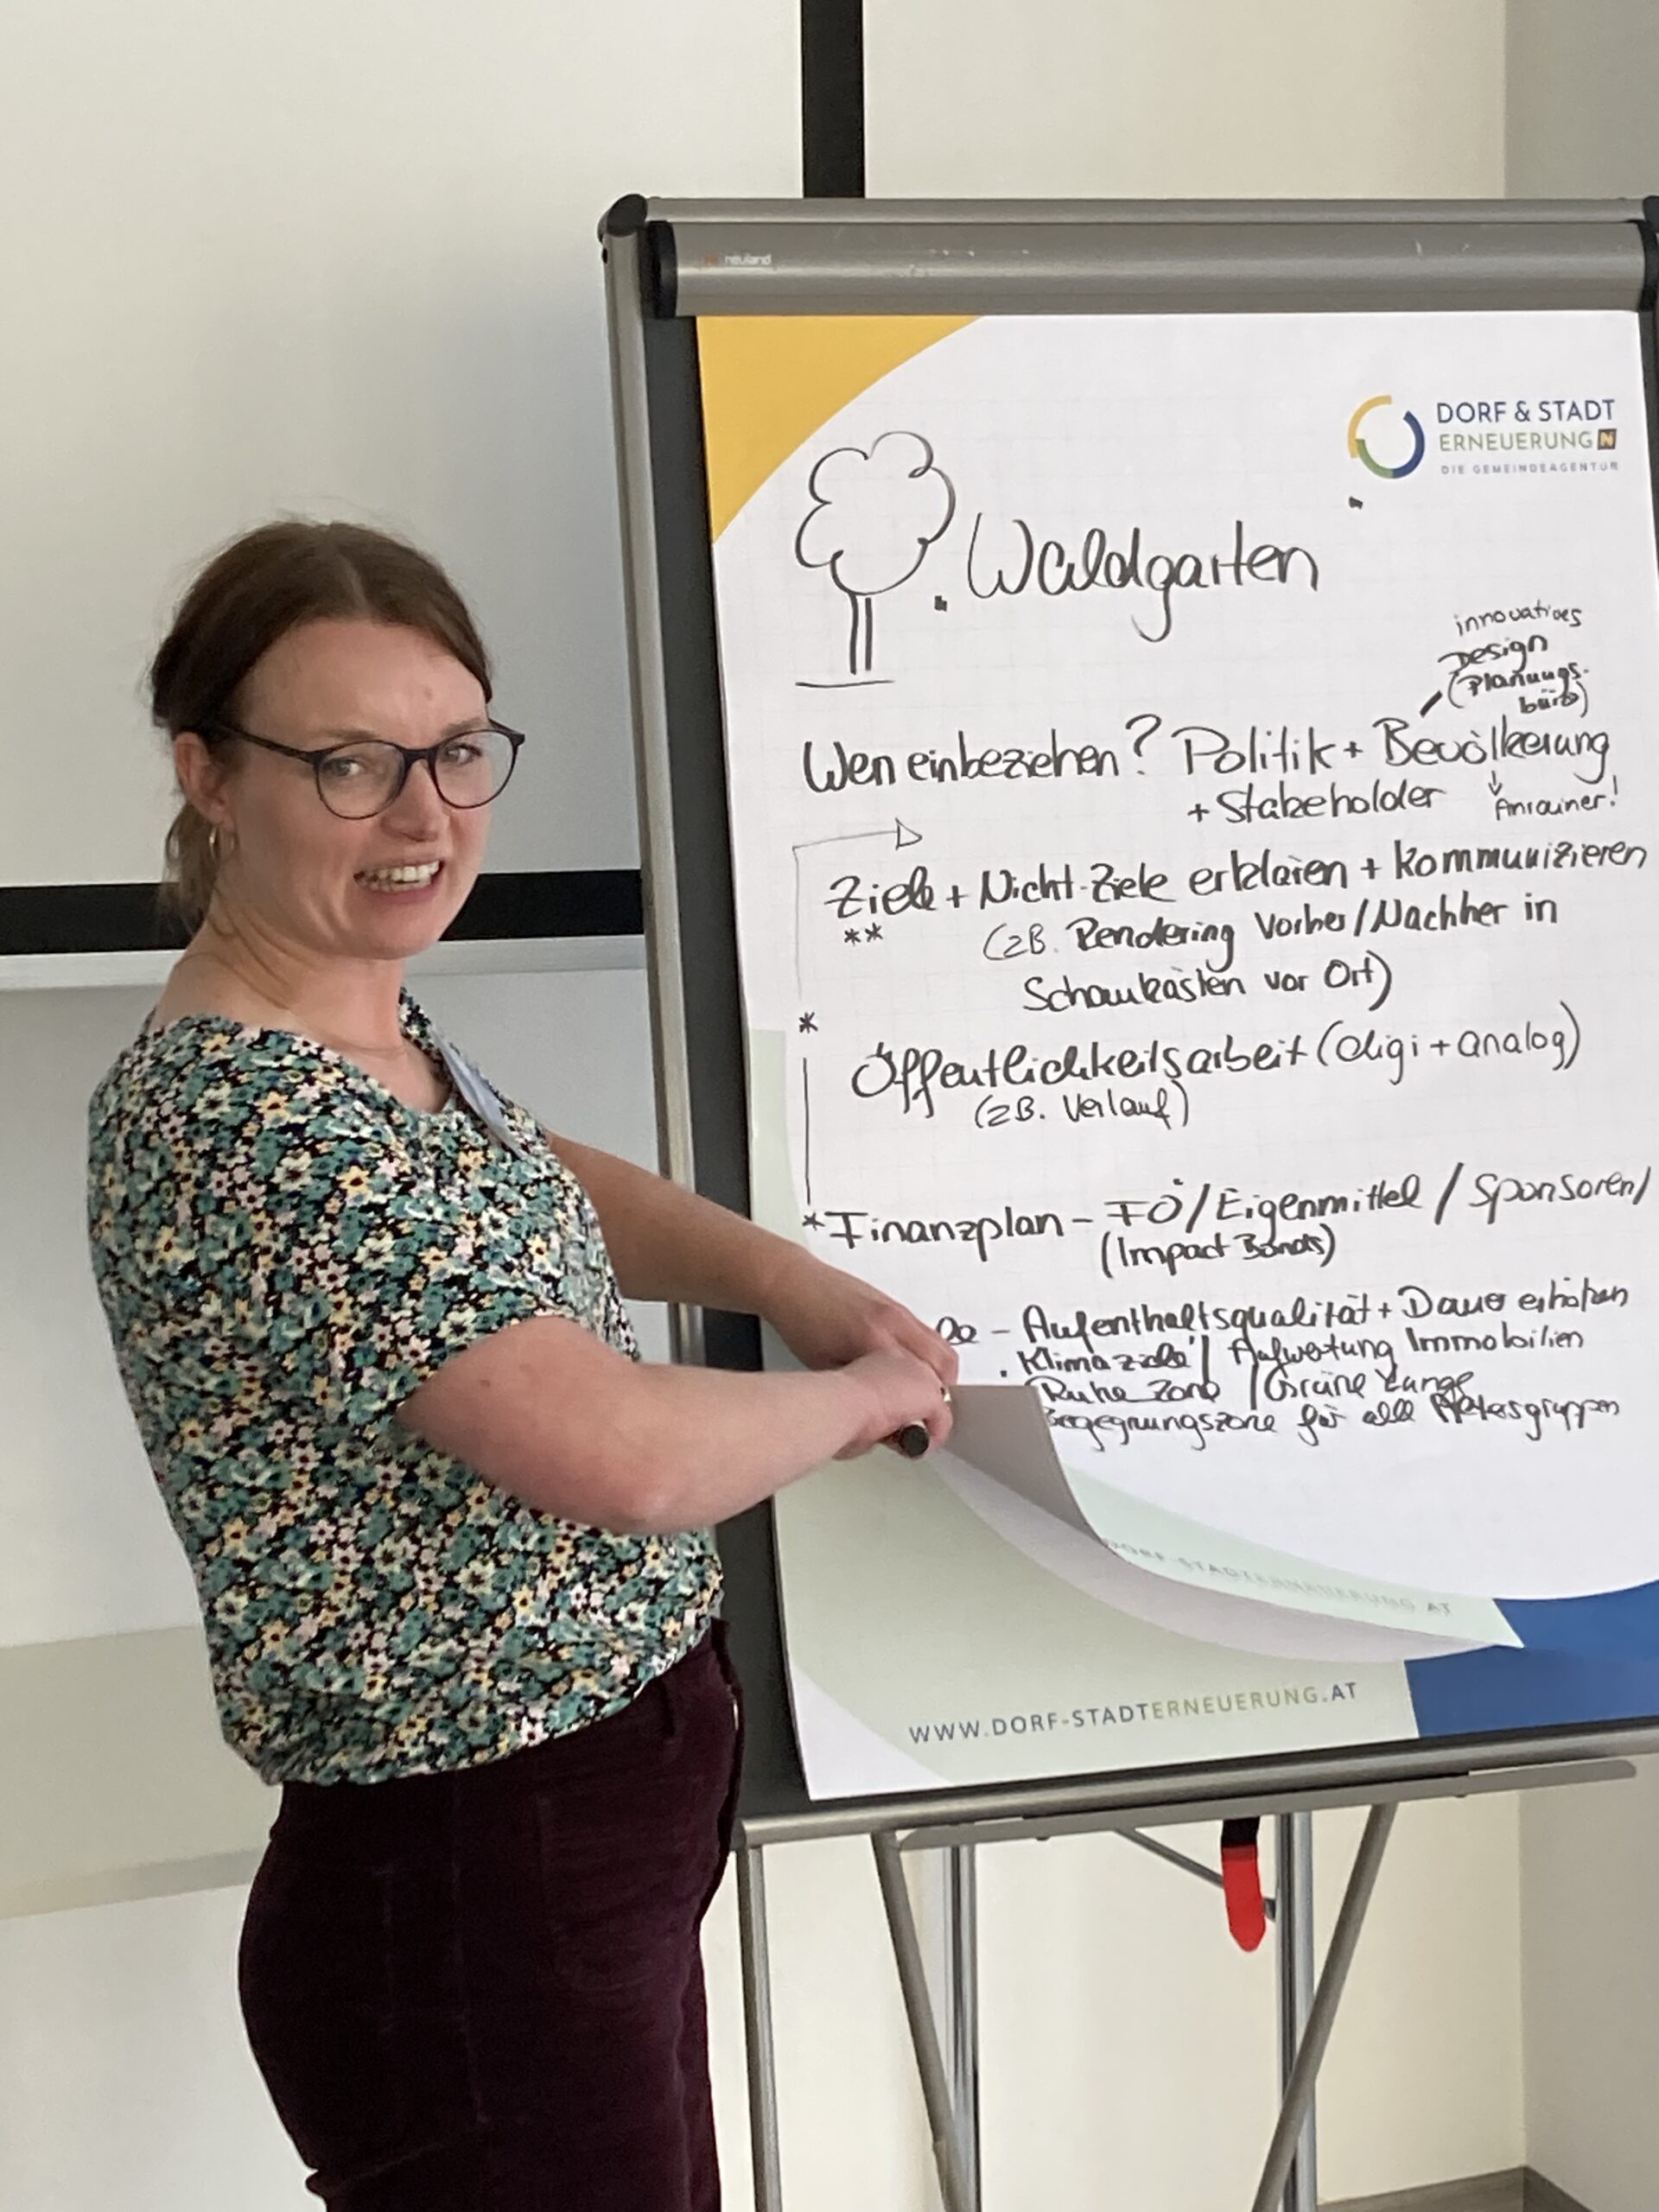 neuland
DORF & STADT
ERNEUERUNG N
DIE GEMEINDEAGENTUR
Waldgarten
innovatives
Design
(Planungs-
büro)
Wen einbeziehen? Politik + Bevölkerung
+ Stakeholder
Anrainer!
Ziele + Nicht-Ziele erklären + kommunizieren
**
(zB. Rendering Vorher/Nachher in
Schaukästen vor Ort)
*
Öffentlichkeitsarbeit (digi + analog)
(zB. Verlauf)
* Finanzplan - FÖ/Eigenmittel / Sponsoren/
(Impact Bonds)
- Aufenthaltsqualität + Dauer erhöhen
. Klimaziele / Aufwertung Immobilien
Ruhe Zone / Grüne Lunge
Begegnungszone für alle Altersgruppen
DORF-STADTERNEUERUNG.AT
WWW.DORF-STADTERNEUERUNG.AT